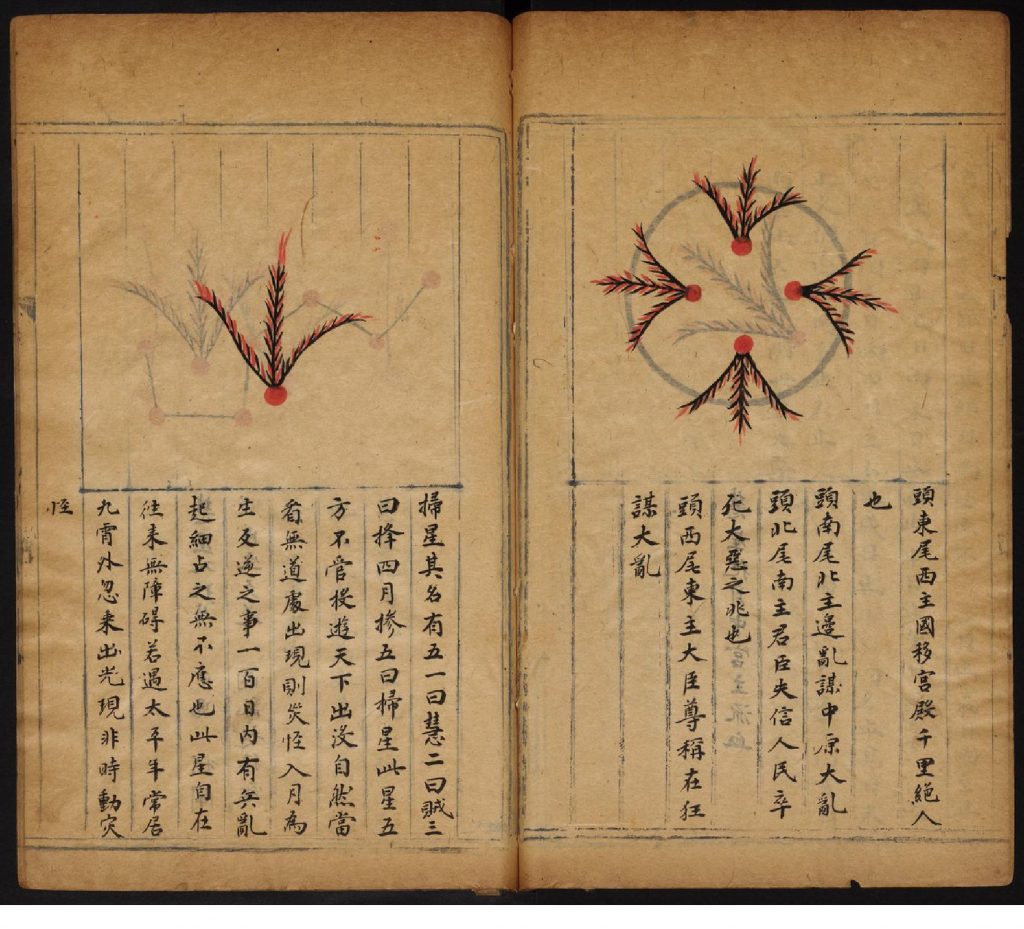 頭東尾西主國移宮殿千里絕人
也
頭南尾北主邊亂謀中原大亂
頭北尾南主君臣失信人民卒
死大惡之兆也
頭西尾東主大臣尊稱在狂
謀大亂
掃星其名有五一曰慧二曰賊三
曰擇四月摻五曰掃星此星五
方不管授遊天下出沒自然當
看無道處出現則災怪入月為
生反逆之事一百日內有兵亂
起細占之無不應也此星自在
往来無障碍若遇太平年常居
九霄外忽来出光現非時動灾
怪